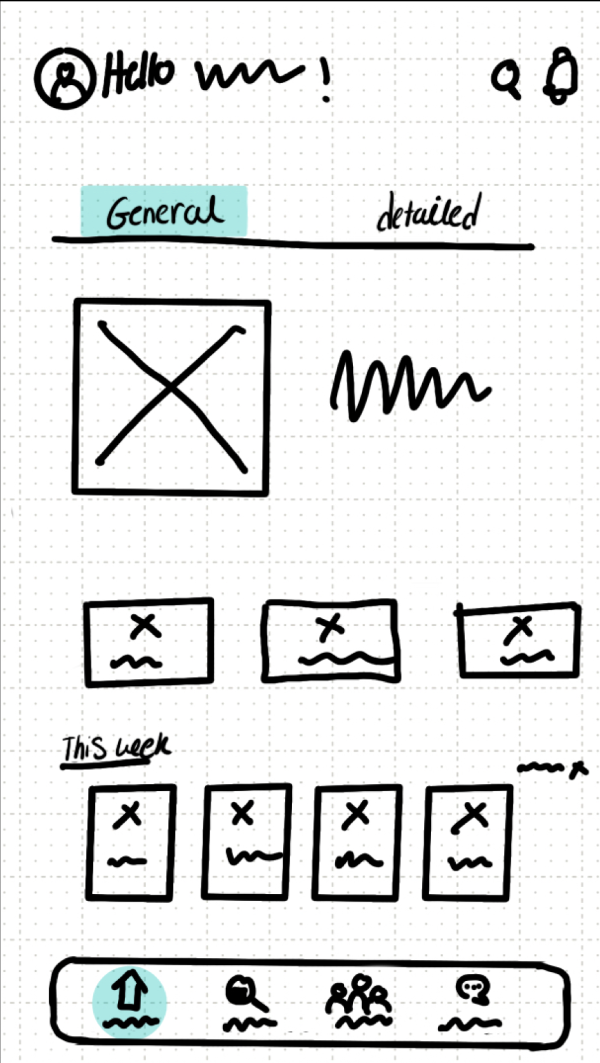 Hello !
General detailed
This week